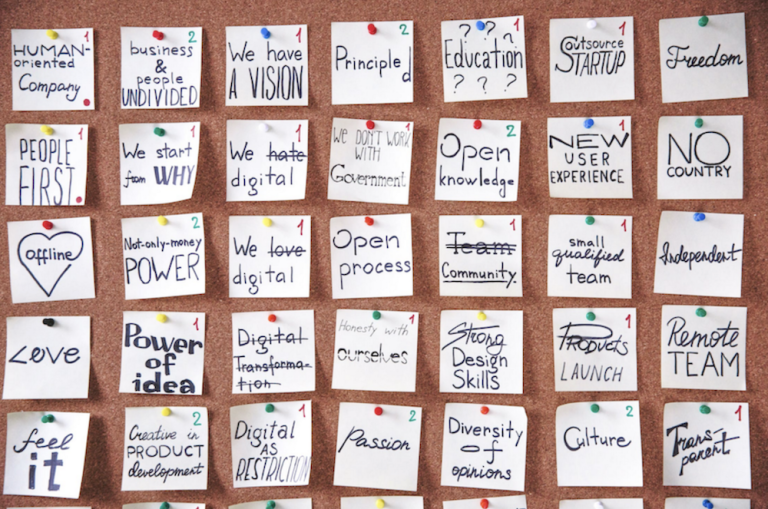 HUMAN-
oriented
Company
1
business
&
people
UNDIVIDED
2
We have
A VISION
1
Principled
2
? ? ?
Education
? ? ?
1
Outsource
STARTUP
1
Freedom
PEOPLE
FIRST
1
We start
from WHY
1
We hate
digital
1
WE DON'T WORK
WITH
Government
1
Open
knowledge
2
NEW
USER
EXPERIENCE
1
NO
COUNTRY
Offline
Not-only-money
POWER
2
We love
digital
1
Open
process
Team
Community
1
small
qualified
team
1
Independent
Love
Power
of
idea
1
Digital
Transforma-
tion
Honesty with
ourselves
1
Strong
Design
Skills
Products
LAUNCH
1
Remote
TEAM
feel
it
Creative in
PRODUCT
development
2
Digital
AS
RESTRICTION
1
Passion
2
Diversity
of
opinions
Culture
2
Trans-
parent
1